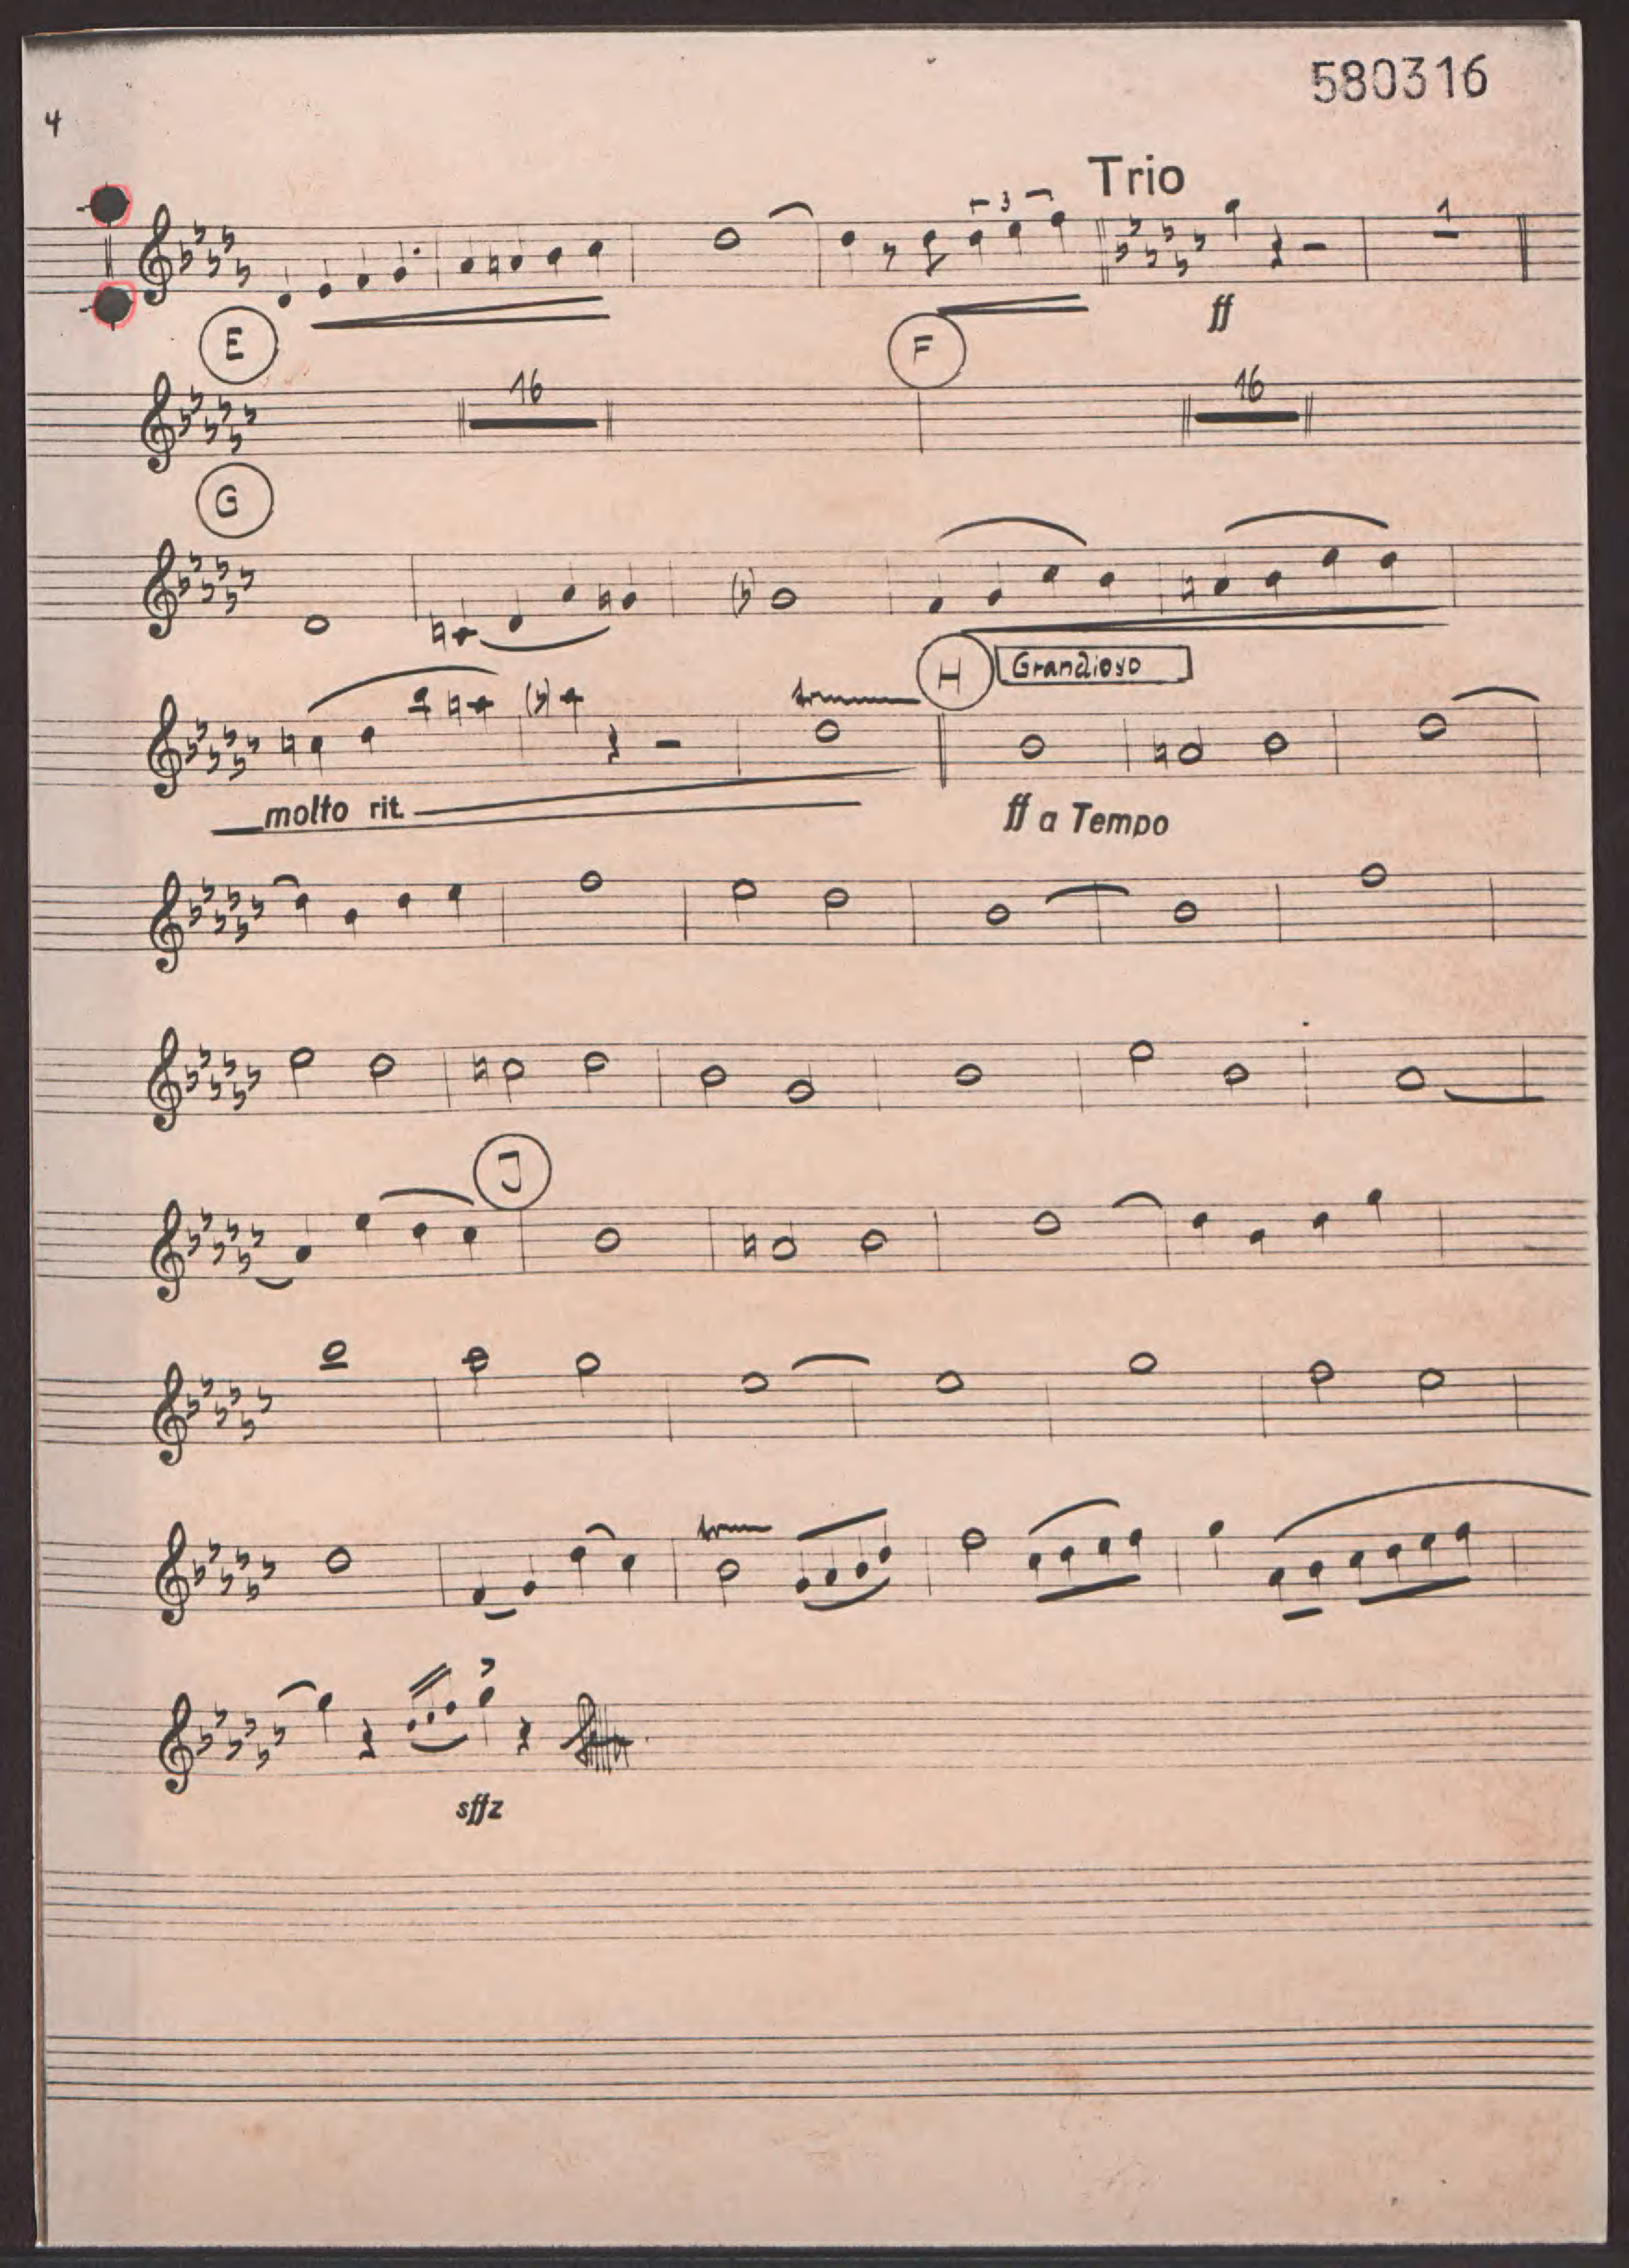 580316
4
Trio
3
1
ff
E
F
16
16
G
H
Grandioso
molto rit.
ff a Tempo
J
sffz